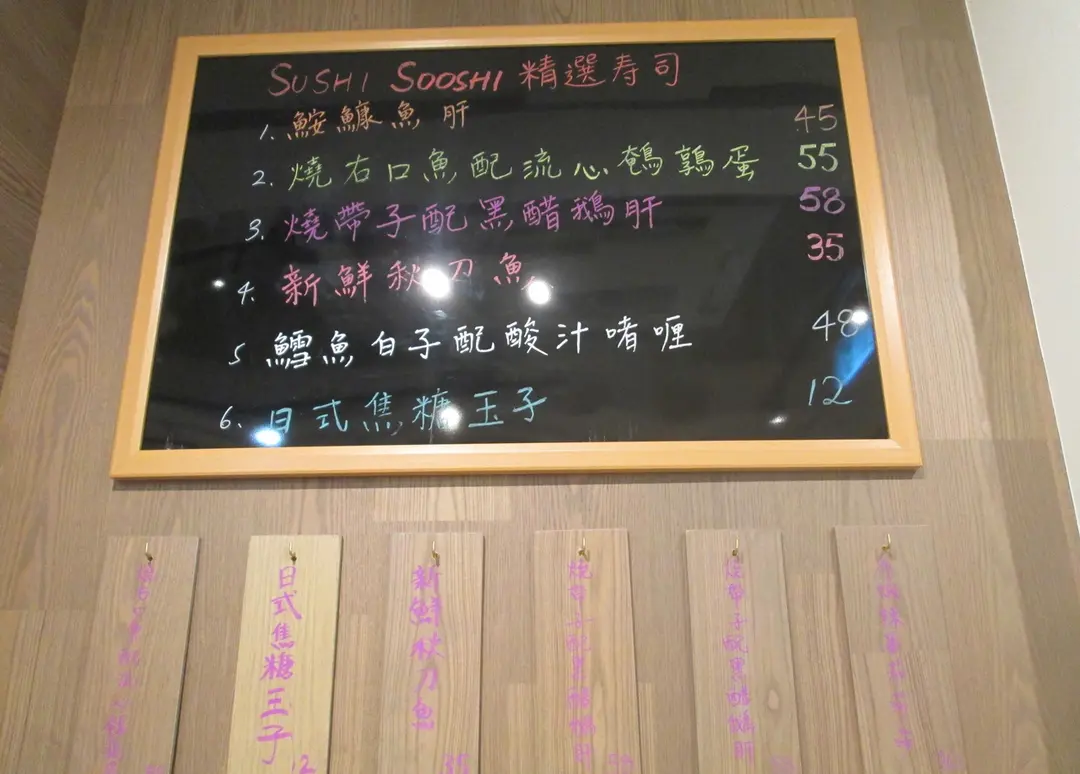 SUSHI SOOSHI 精選寿司
1. 鮟鱇魚肝 45
2. 燒右口魚配流心鵪鶉蛋 55
3. 燒帶子配黑醋鵝肝 58
4. 新鮮秋刀魚 35
5 鱈魚白子配酸汁啫喱 48
6. 日式焦糖玉子 12
日式焦糖玉子 12
新鮮秋刀魚 35
燒帶子配黑醋鵝肝
燒帶子配黑醋鵝肝